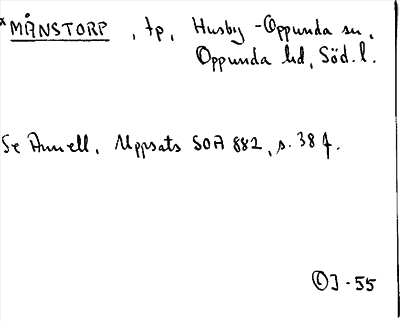 *MÅNSTORP, tp, Husby-Oppunda sn,
Oppunda hd, Söd. l.
Se Annell, Uppsats SOA 882, s. 38 f.
OJ-55